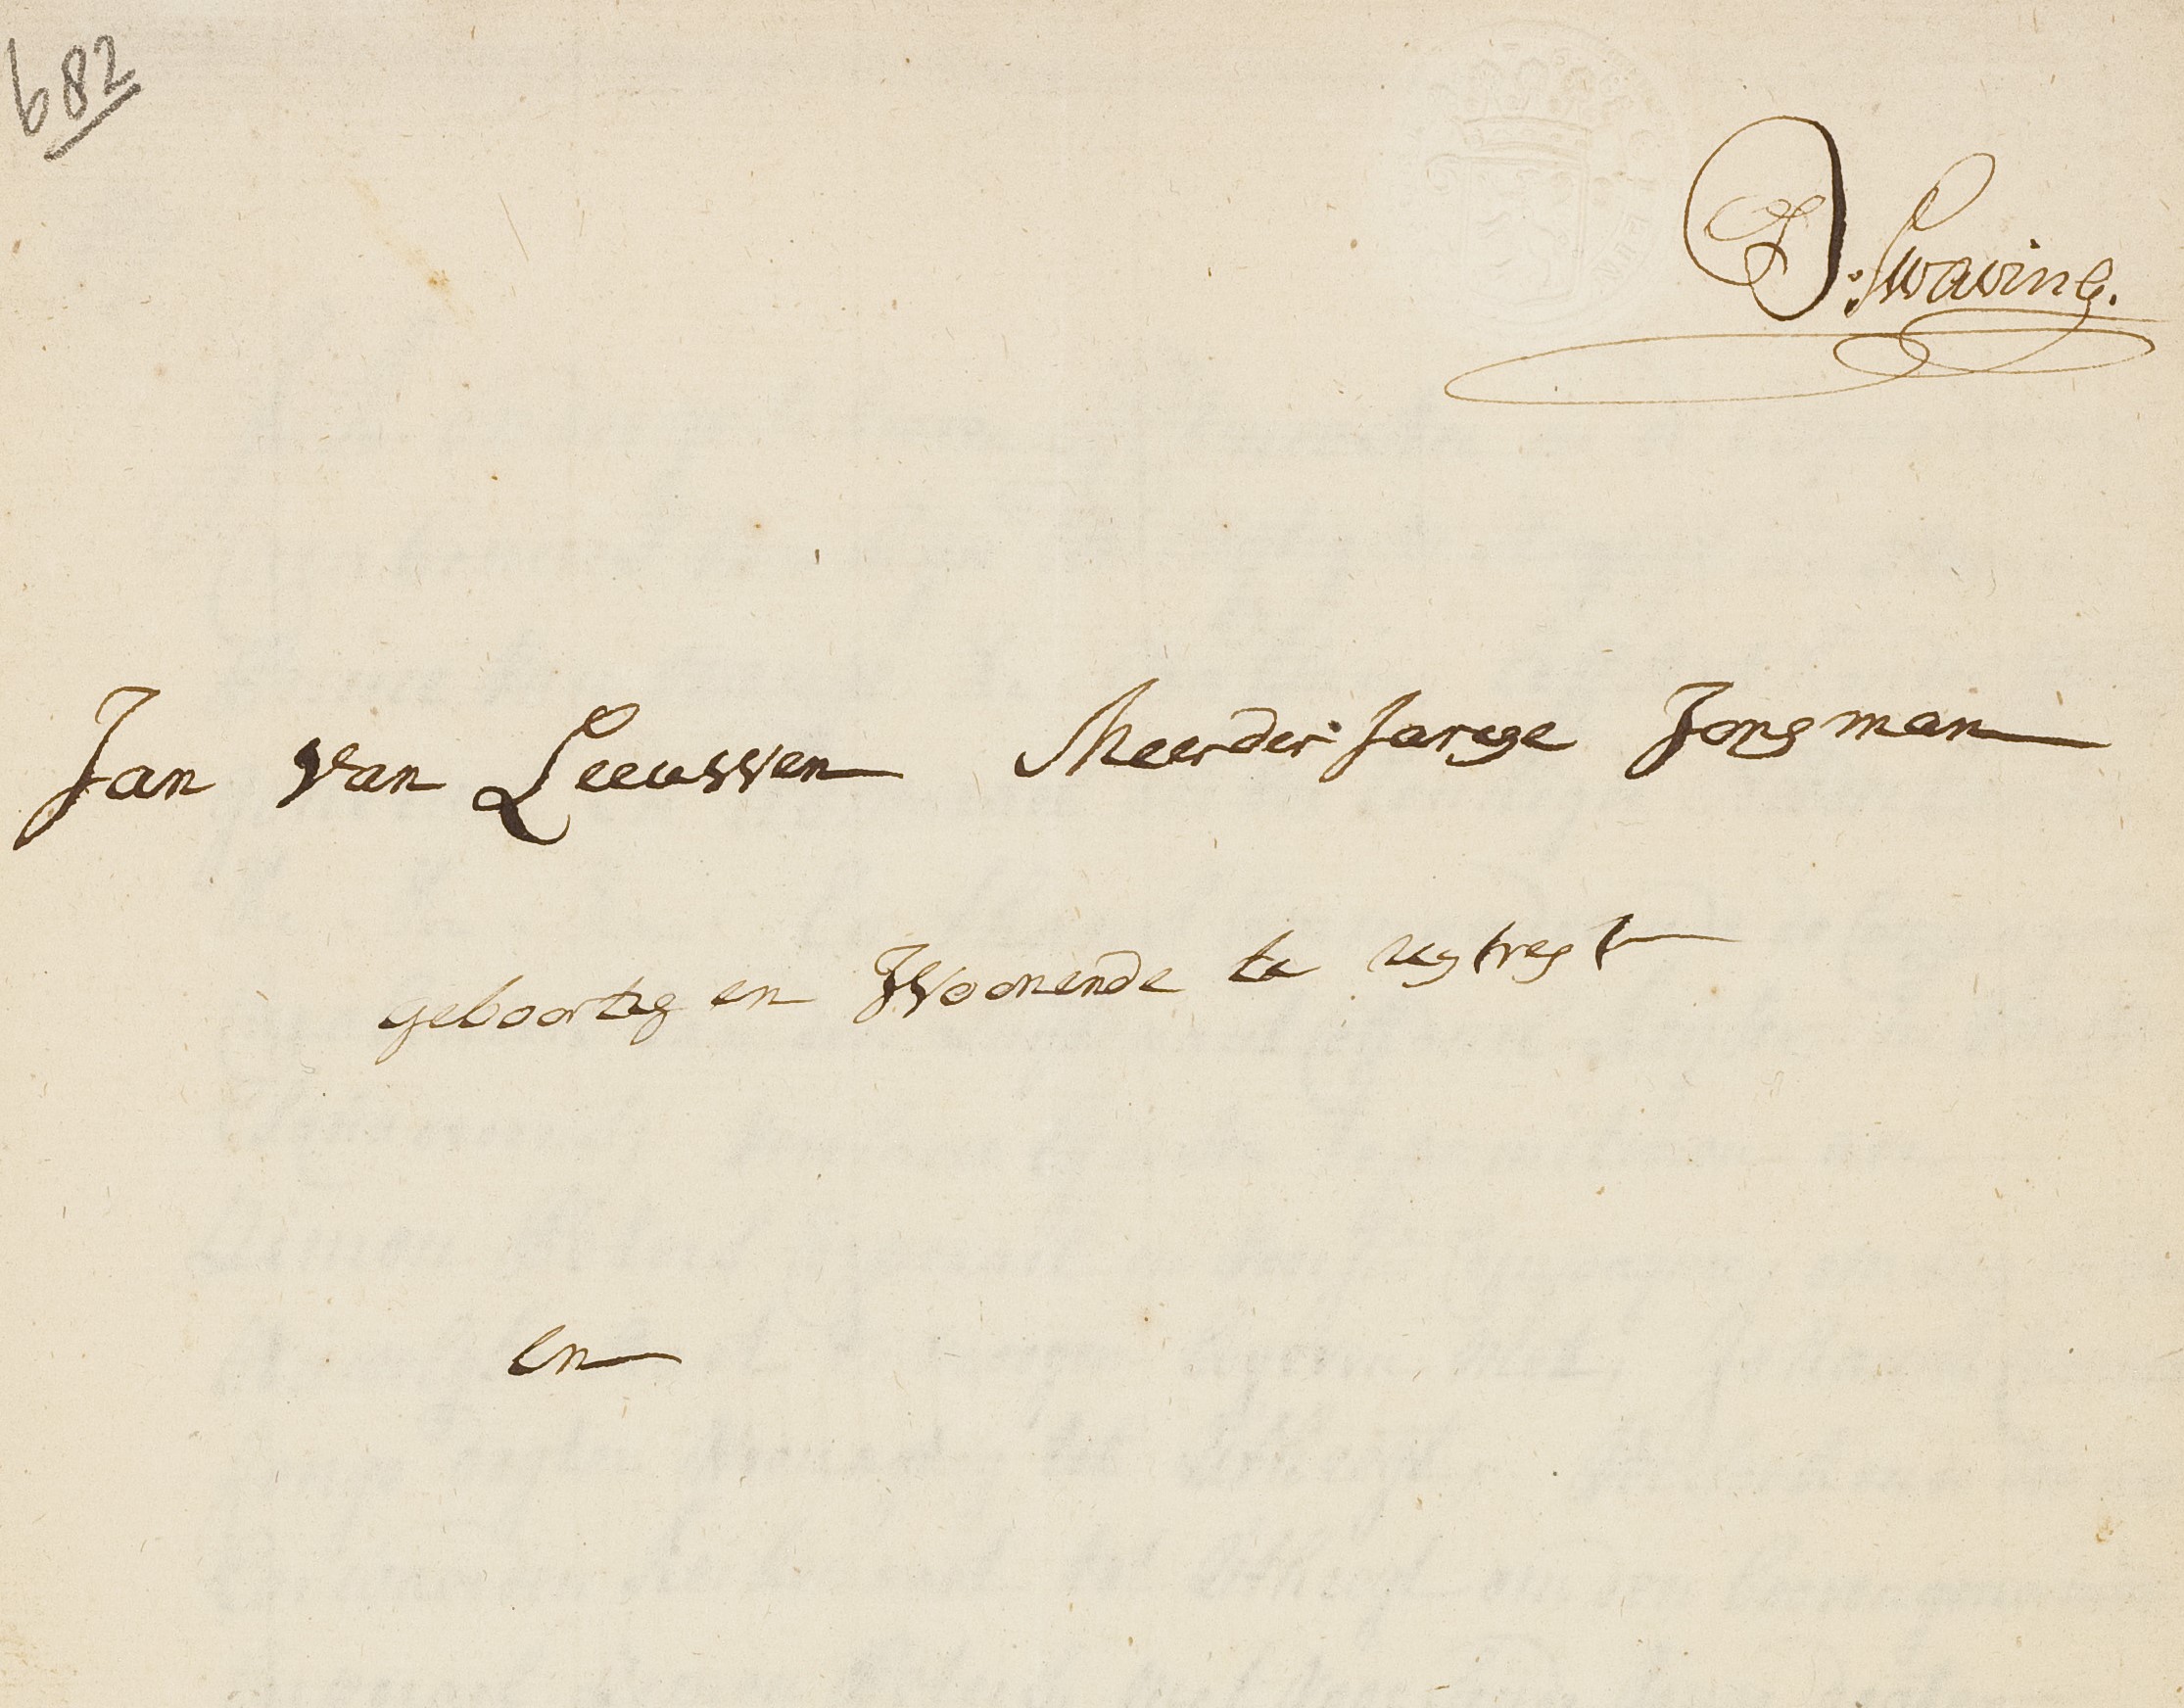 682
D. Swaving.
Jan van Leeuwen Meerder Jarege Jongman
geboortig en Jwoonende te uytregt
en